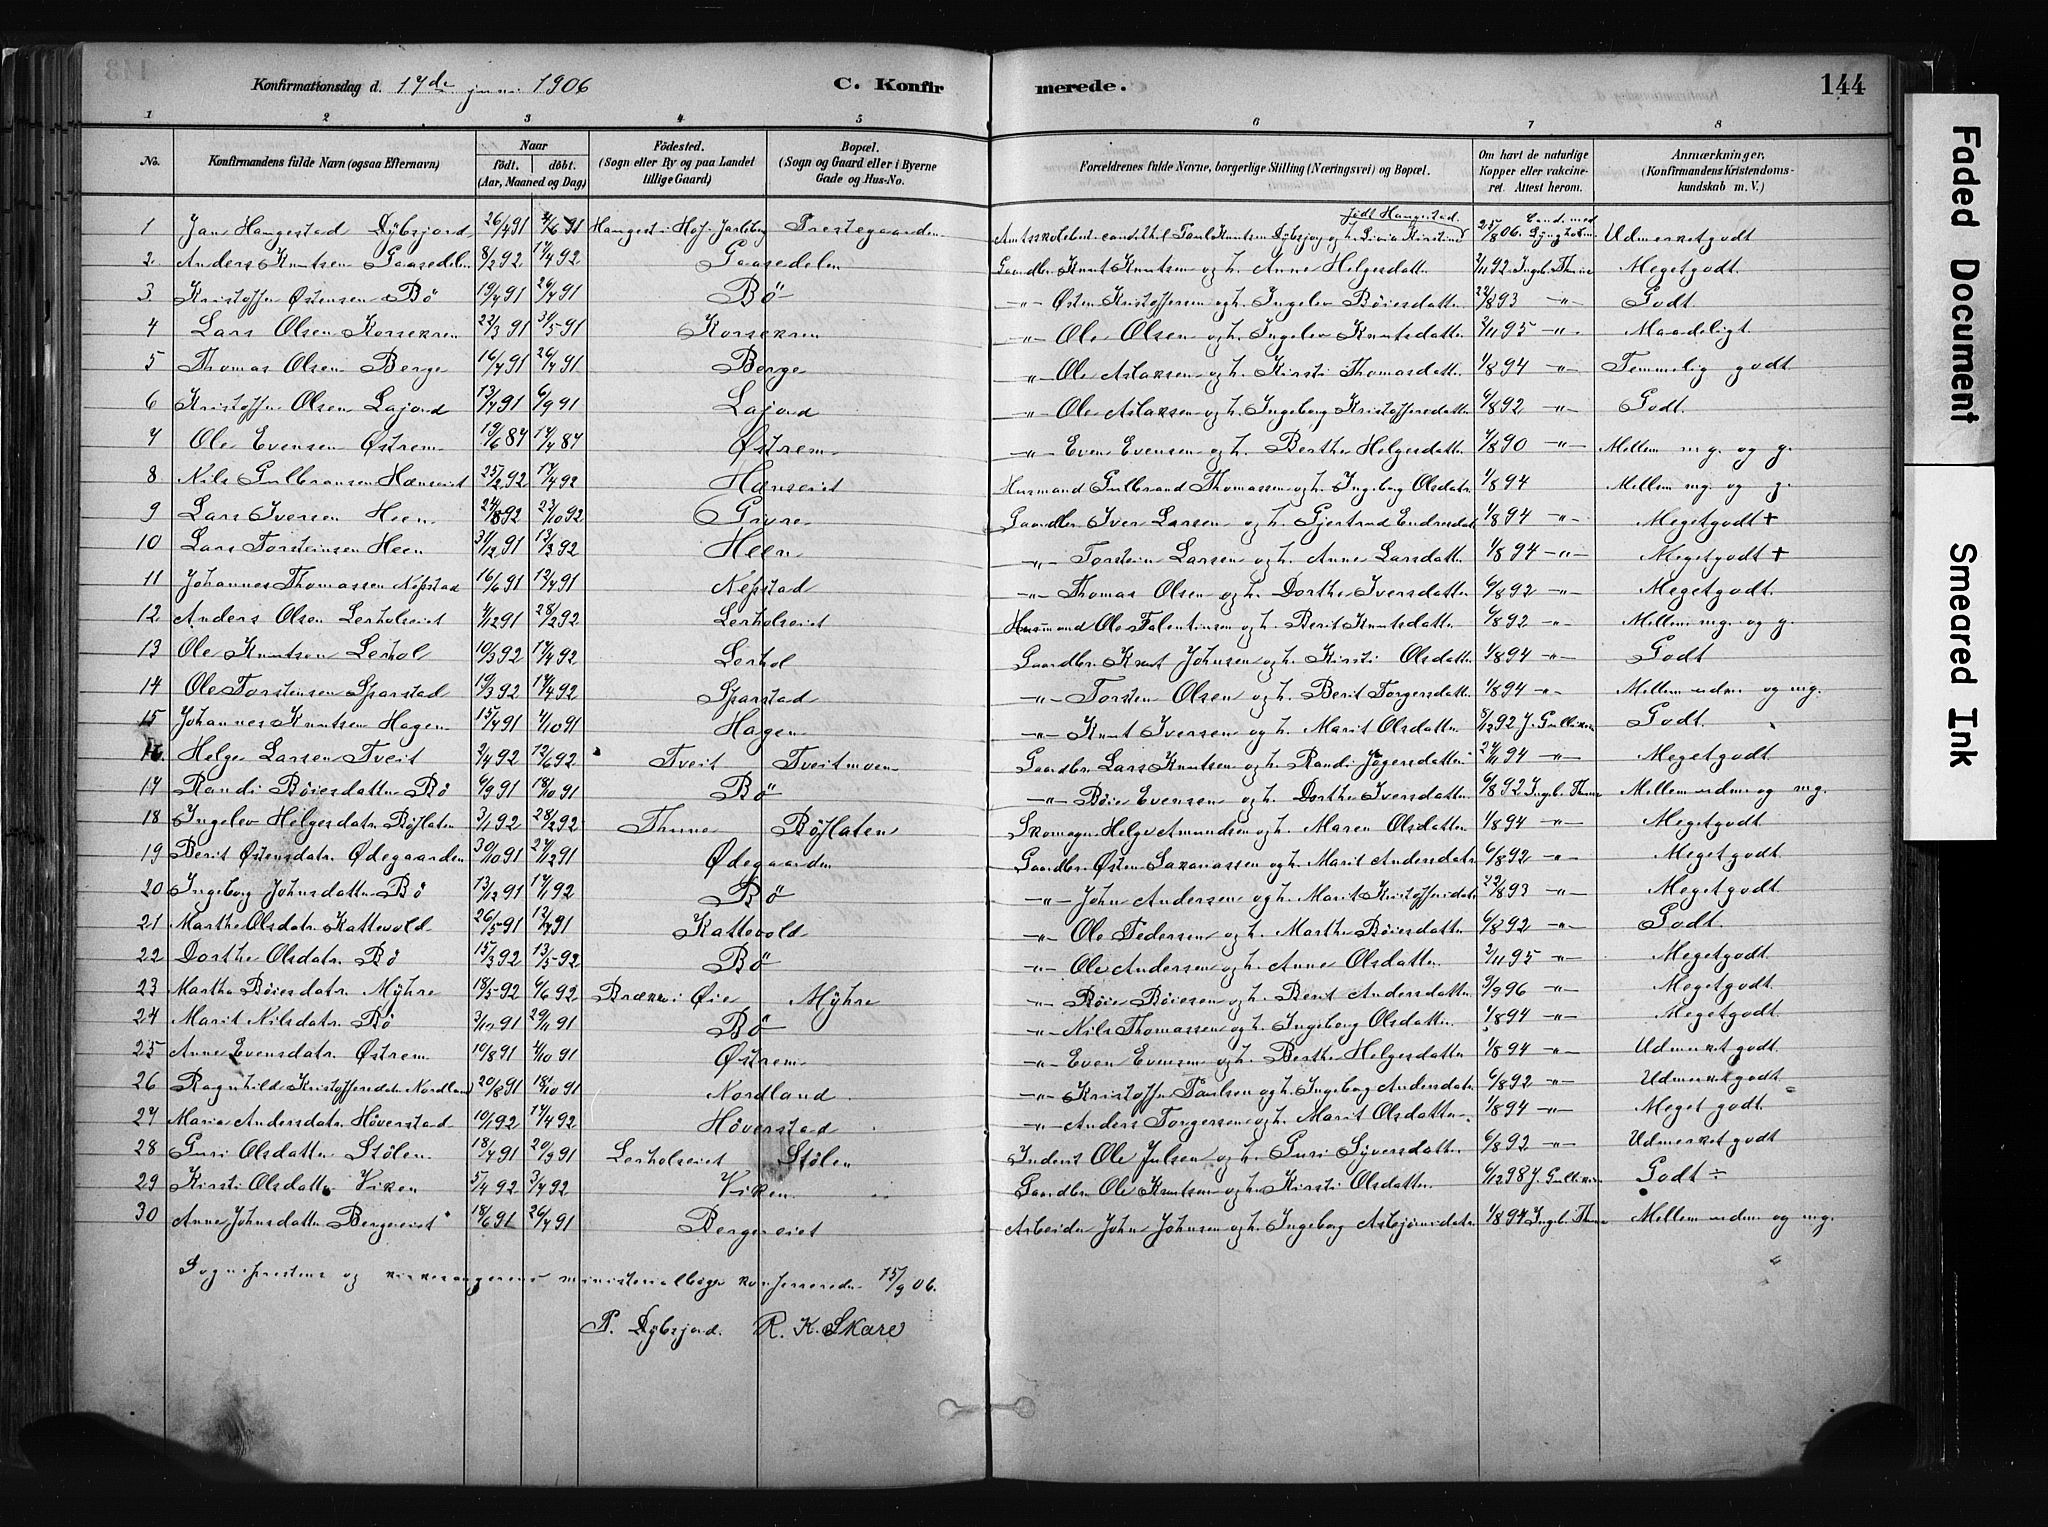 Konfirmationsdag d. 17de juni 1906 C. Konfirmerede. 144
1 2 3 4 5 6 7 8
No. Konfirmandens fulde Navn (ogsaa Efternavn) Naar födt. döbt. (Aar, Maaned og Dag) Födested. (Sogn eller By og paa Landet tillige Gaard) Bopæl. (Sogn og Gaard eller i Byerne Gade og Hus-No. Forældrenes fulde Navne, borgerlige Stilling (Næringsvei) og Bopæl. Om havt de naturlige Kopper eller vakcineret. Attest herom. Anmærkninger, (Konfirmandens Kristendomskundskab m. V.)
1 Jan Haugestad Dybsjord 26/4 91 Prestegaarden født Haugestad. Udmerket godt
2 Anders Knutsen Gaasedelen 8/2 92 17/4 92 Gaasedelen Gaardbr. Knut Knutsen og h. Anne Helgesdatter 2/11 92 Ingeb. Thune Meget godt.
3 Kristoffer Østensen Bö 19/4 91 26/4 91 Bö -"- Østen Kristoffersen og h. Ingelev Böiesdatter 22/8 93 -"- Godt.
4 Lars Olsen Korsekren 22/3 91 31/5 91 Korsekren -"- Ole Olsen og h. Ingelev Knutsdatter 2/11 95 -"- Maadeligt
5 Thomas Olsen Berge 16/4 91 26/4 91 Berge -"- Ole Aslaksen og h. Kirsti Thomasdatter 1/8 94 -"- Temmelig godt
6 Kristoffer Olsen Lajord 13/7 91 6/9 91 Lajord -"- Ole Aslaksen og h. Ingeborg Kristoffersdatter 6/8 92 -"- Godt.
7 Ole Evensen Østrem 19/6 87 17/7 87 Østrem -"- Even Evensen og h. Berthe Helgesdatter 7/8 90 -"- Mellem mg. og g.
8 Nils Gulbransen Hænseiet 25/2 92 17/4 92 Hænseiet Husmand Gulbrand Thomassen og h. Ingeborg Olsdatr. 1/8 94 Mellem mg. og g.
9 Lars Iversen Heen 24/8 92 23/10 92 Givre Gaardbr. Iver Larsen og h. Gjertrud Endresdat. 1/8 94 -"- Meget godt +
10 Lars Torsteinsen Heen 31/12 91 13/3 92 Heen -"- Torstein Larsen og h. Anne Larsdatter 1/8 94 -"- Meget godt +
11 Johannes Thomassen Nepstad 16/6 91 12/7 91 Nepstad -"- Thomas Olsen og h. Dorthe Iversdatter 6/8 92 -"- Meget godt.
12 Anders Olsen Lerholseiet 4/12 91 28/2 92 Lerholseiet Husmand Ole Falentinsen og h. Berit Knutsdatter 6/8 92 -"- Mellem mg. og g.
13 Ole Knutsen Lerhol 10/3 92 17/4 92 Lerhol Gaardbr. Knut Johnsen og h. Kirsti Olsdatter 1/8 94 -"- Godt
14 Ole Torstensen Sparstad 19/3 92 17/4 92 Sparstad -"- Torsten Olsen og h. Berit Torgersdatter 1/8 94 -"- Mellem udm. og mg.
15 Johannes Knutsen Hagen 15/7 91 4/10 91 Hagen -"- Knut Iversen og h. Marit Olsdatter 8/12 92 J. Gulliksen Godt.
16. Helge Larsen Tveit 2/4 92 12/6 92 Tveit Tveitmoen Gaardbr. Lars Knutsen og h. Randi Jögersdatter 24/11 94 -"- Meget godt
17 Randi Böiesdatter Bö 6/9 91 18/10 91 Bö -"- Böie Evensen og h. Dorthe Iversdatter 6/8 92 Ingeb. Thune Mellem udm. og mg.
18 Ingelev Helgesdatr. Böflaten 3/1 92 28/2 92 Thune Böflaten Skomager Helge Amundsen og h. Maren Olsdatter 1/8 94 -"- Meget godt
19 Berit Østensdatr. Ødegaarden 30/10 91 27/12 91 Ødegaarden Gaardbr. Østen og h. Marit Andersdatr. 6/8 92 -"- Meget godt.
20 Ingeborg Johnsdatter Bö 13/12 91 17/1 92 Bö -"- John Andersen og h. Marit Kristoffersdatr. 22/8 93 -"- Meget godt
21 Marthe Olsdatr. Kattevold 26/5 91 12/7 91 Kattevold -"- Ole Pedersen og h. Marthe Böiesdatter 6/8 92 -"- Godt.
22 Dorthe Olsdatr. Bö 15/3 92 13/5 92 Bö -"- Ole Andersen og h. Anne Olsdatter 2/11 95 -"- Meget godt.
23 Marthe Böiesdatr. Myhre 18/5 92 6/6 92 i Øie Myhre -"- Böie Böiesen og h. Berit Andersdatter 3/9 96 -"- Meget godt.
24 Marit Nilsdatr. Bö 3/10 91 29/11 91 Bö -"- Nils Thomassen og h. Ingeborg Olsdatter 1/8 94 -"- Meget godt
25 Anne Evensdatr. Østrem 10/8 91 4/10 91 Østrem -"- Even Evensen og h. Berthe Helgesdatter 1/8 94 -"- Udmerket godt
26 Ragnhild Kristoffersdatr. Nordland 20/8 91 18/10 91 Nordland -"- Kristoffer Paulsen og h. Ingeborg Andersdatr. 6/8 92 -"- Udmerket godt
27 Maria Andersdatr. Höverstad 10/1 92 17/4 92 Höverstad -"- Anders Torgersen og h. Marit Olsdatter 1/8 94 -"- Meget godt.
28 Guri Olsdatter Stölen 18/7 91 20/9 91 Lerholseiet Stölen Inderst Ole Julsen og h. Guri Syversdatter 6/8 92 -"- Udmerket godt
29 Kirsti Olsdatter Viken 5/4 92 3/7 92 Viken Gaardbr. Ole Knutsen og h. Kirsti Olsdatter 6/12 98 J. Gulliksen Godt ÷
30 Anne Johnsdatter Bergeeiet 18/6 91 26/7 91 Bergeeiet Arbeider John Johnsen og h. Ingeborg Asbjörnsdatr. 1/8 94 Ingeb. Thune Mellem udm. og mg.
Sogneprestens og kirkesangerens ministerialböger konfererede 15/9 06.
P. Dybsjord. R. K. Skare
Faded Document
Smeared Ink